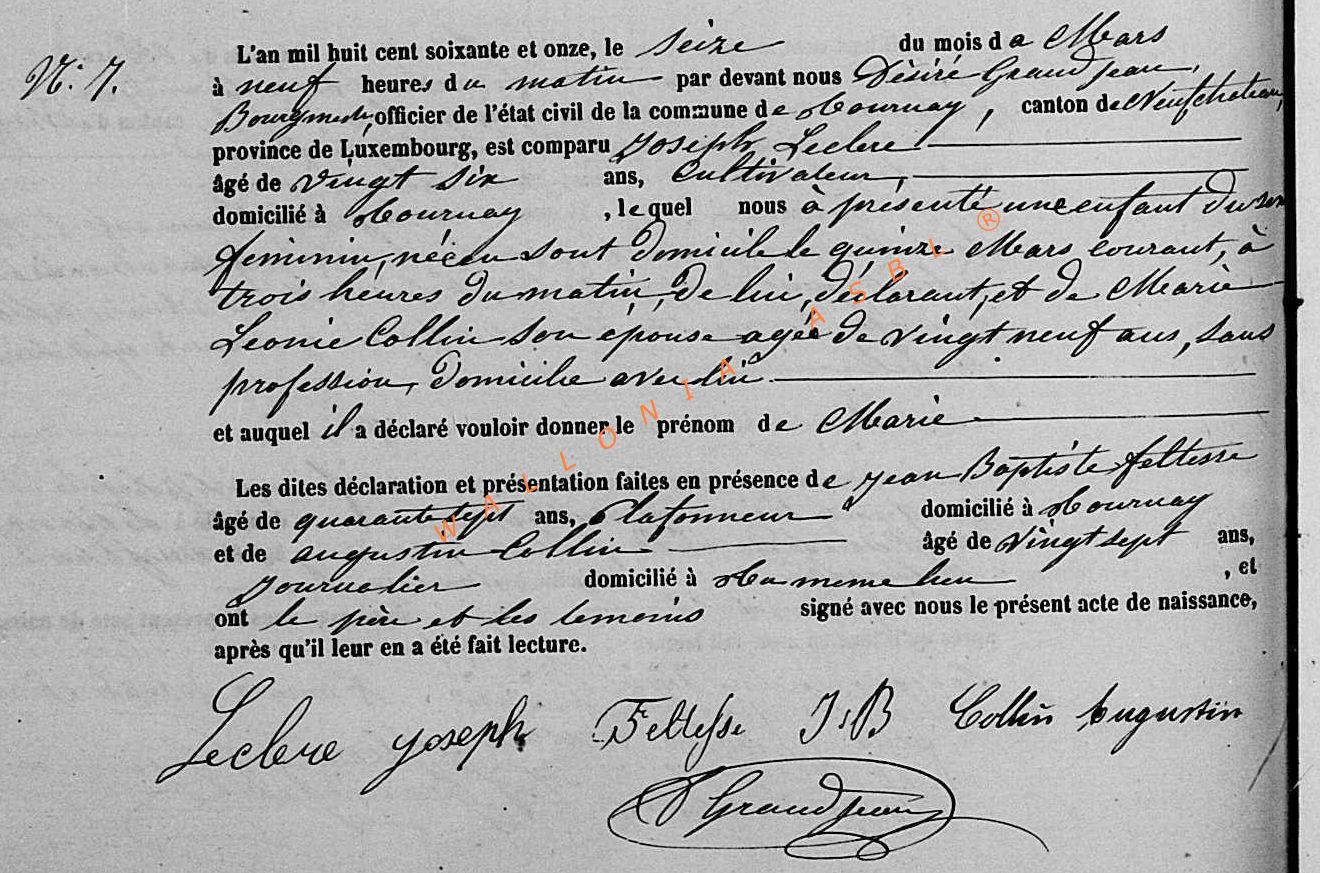 N: 7.
L'an mil huit cent soixante et onze, le seize du mois de Mars
à neuf heures du matin par devant nous Désiré Grandjean,
Bourgmestre, officier de l'état civil de la commune de Tournay, canton de Neufchateau,
province de Luxembourg, est comparu Joseph Leclere
âgé de vingt six ans, Cultivateur,
domicilié à Tournay, lequel nous à présenté une enfant du sexe
feminin, née en sont domicile le quinze Mars courant, à
trois heures du matin, de lui, déclarant, et de Marie
Leonie Collin son épouse agée de vingt neuf ans, sans
profession, domicilie avec lui
et auquel il a déclaré vouloir donner le prénom de Marie
Les dites déclaration et présentation faites en présence de Jean Baptiste Feltesse
âgé de quarante sept ans, Plafonneur domicilié à Tournay
et de augustin Collin âgé de vingt sept ans,
Journalier domicilié à du meme lieu, et
ont le père et les temoins signé avec nous le présent acte de naissance,
après qu'il leur en a été fait lecture.
Leclere Joseph Feltesse J:B Collin Augustin
D Grandjean
WALLONIA ASBL ®